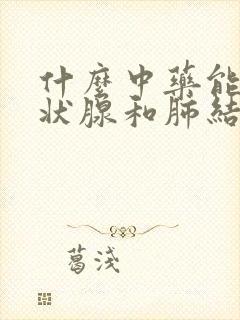 什麼中藥能
狀腺和肺結
葛淺